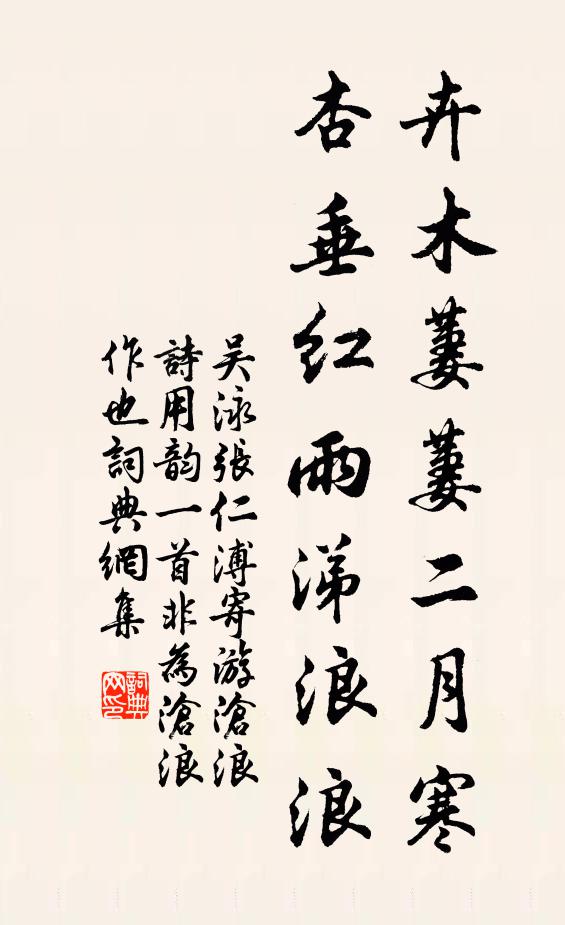 卉木萋萋二月寒
杏垂紅雨涕浪浪
吴泳張仁溥寄游滄浪
詩用韵一首非為滄浪
作也詞典網集
詞典网印